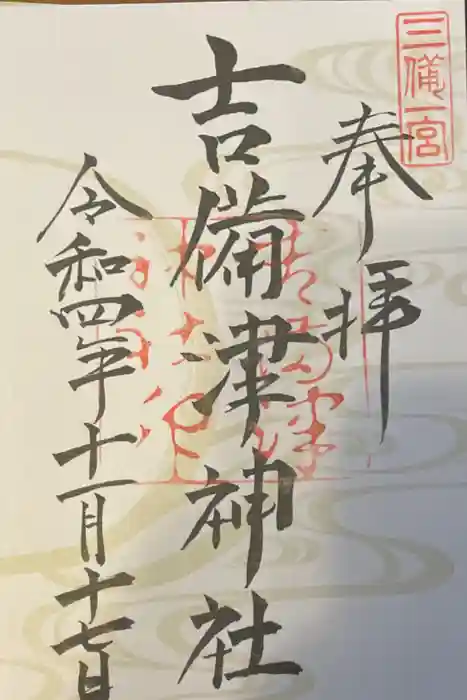 三備一宮
奉拝
吉備津神社
令和四年十一月十七日